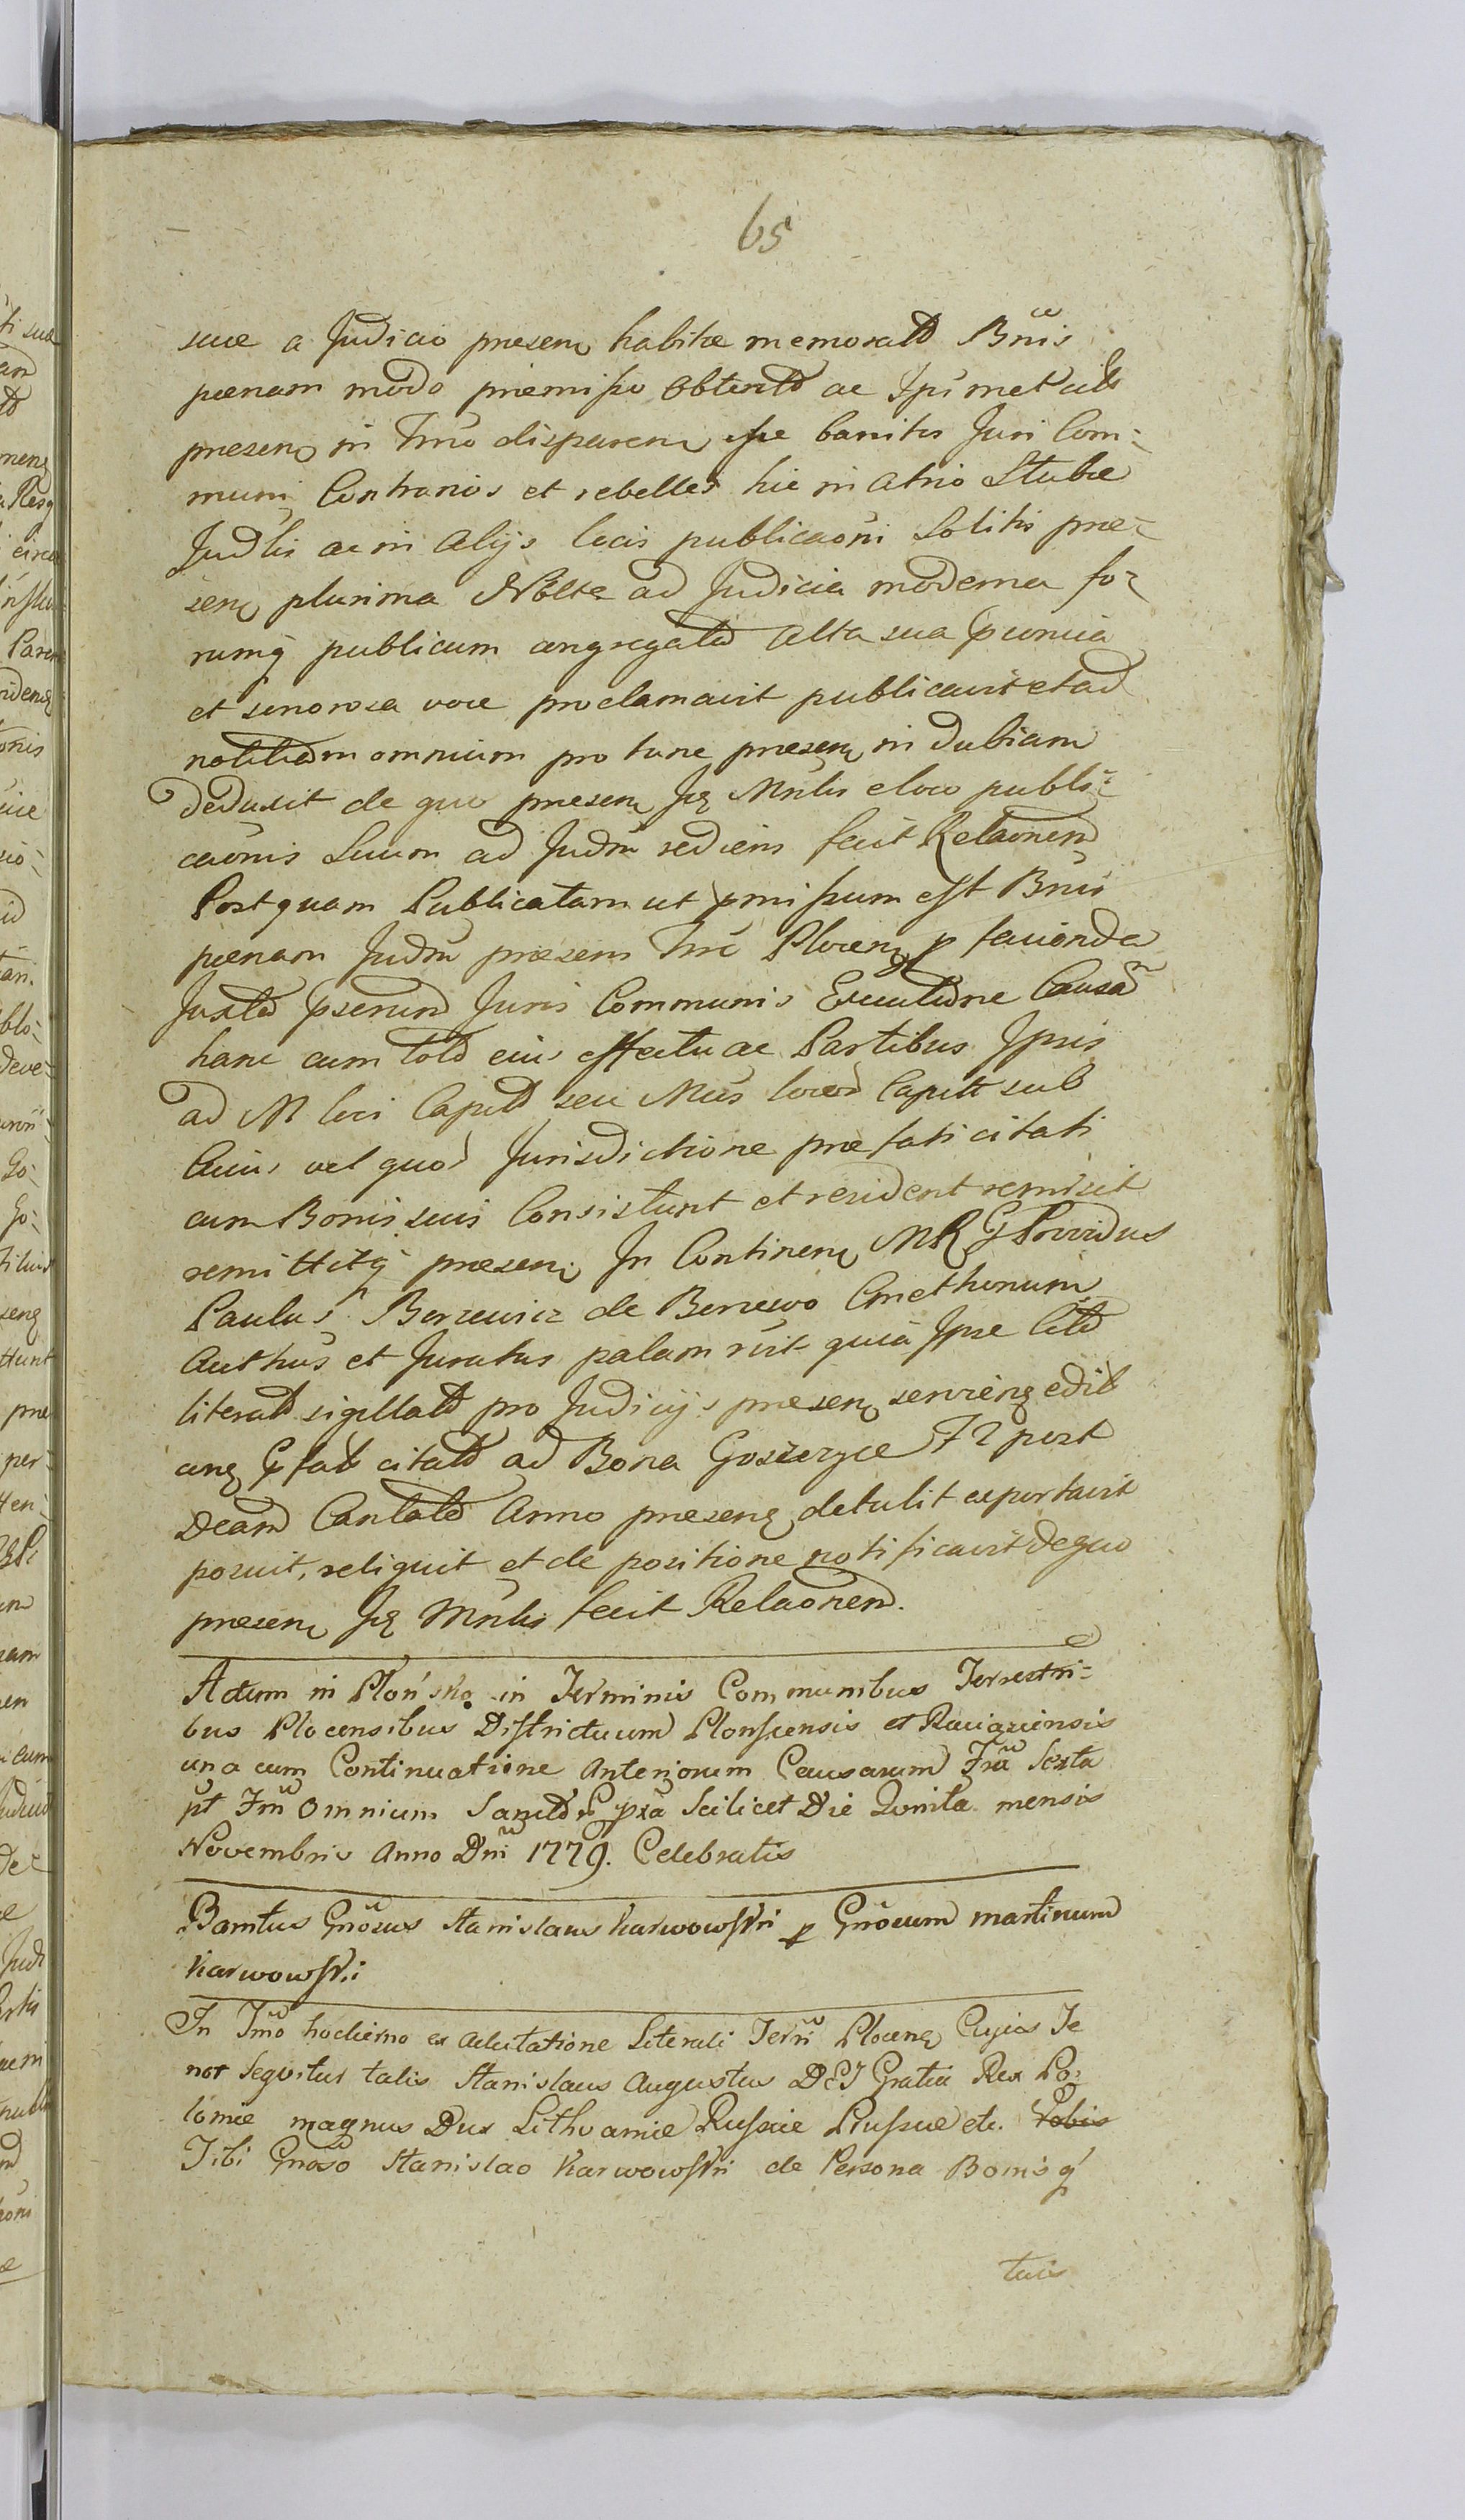 65
suæ a Judicio presenq habitæ memoratã Bnis
pœnam modo præmisso obtentã ac Ipsimet citti
presenq in Tmo disparenq esse banitos Juri Com:
muni Contrarios et rebelles hic in atrio Stubæ
Judlis ac in alijs locis publicaõni Solitis præ:
senq plurima Nõltte ad Judicia moderna fo:
rumq publicum congregatã alta sua
et sonorosa voce proclamavit publicavit et ad
notitiam omnium pro tunc presenq in dubiam
deduxit de quo presenq Jq Mnlis e loco publi:
caõnis Suum ad Judm rediens fecit Relaõnem
Postquam Publicatam ut pmissum est Bnis
pœnam Judm præsens Tmi Plocenq p facienda
Juxta Juris Communis Executione Causam
hanc cum tota eius effectu ac Partibus Ipsis
ad M loci Capitã seu Mûs locor Capitt sub
Cuius vel quor Jurisdictione præfati citati
cum Bonis suis Consistunt et resident remisit
remittitq presenq In Continenq MR G Providus
Paulus Borzewicz de Berzewo Cmethonum
Authus et Juratus palam rcit quia Ipse Cittã
literatã sigillatã pro Judicijs presenq servienq edit
cunq pfati citatã ad Bona Goszczyce F2 post
Dcam Cantatã Anno presenq detulit exportavit
posuit, reliquit et de positione notificavit de quo
presenq Jq Mnlis fecit Relaõnem.
Actum in Płońsko in Terminis Communibus Terrestri:
bus Plocensibus Districtuum Plonscensis et Raciąziensis
una cum Continuatione Anteriorum Causarum Fria Sexta
pt Fm Omnium Sanctor pxa Scilicet Die Quinta mensis
Novembris Anno Dni 1779. Celebratis
Banitus Gnõsus Stanislaus Karwowski p Gnõsum Martinum
Karwowski
In Tmo hodierno ex adcitatione Literali Terri Plocenq Cujus Te
nor Sequitur talis Stanislaus Augustus DEJ Gratia Rex Po:
loniæ magnus Dux Lithvaniæ Russiæ Prussiæ etc. Vobis
Tibi Gnõso Stanislao Karwowski de Persona Bonisq
tuis